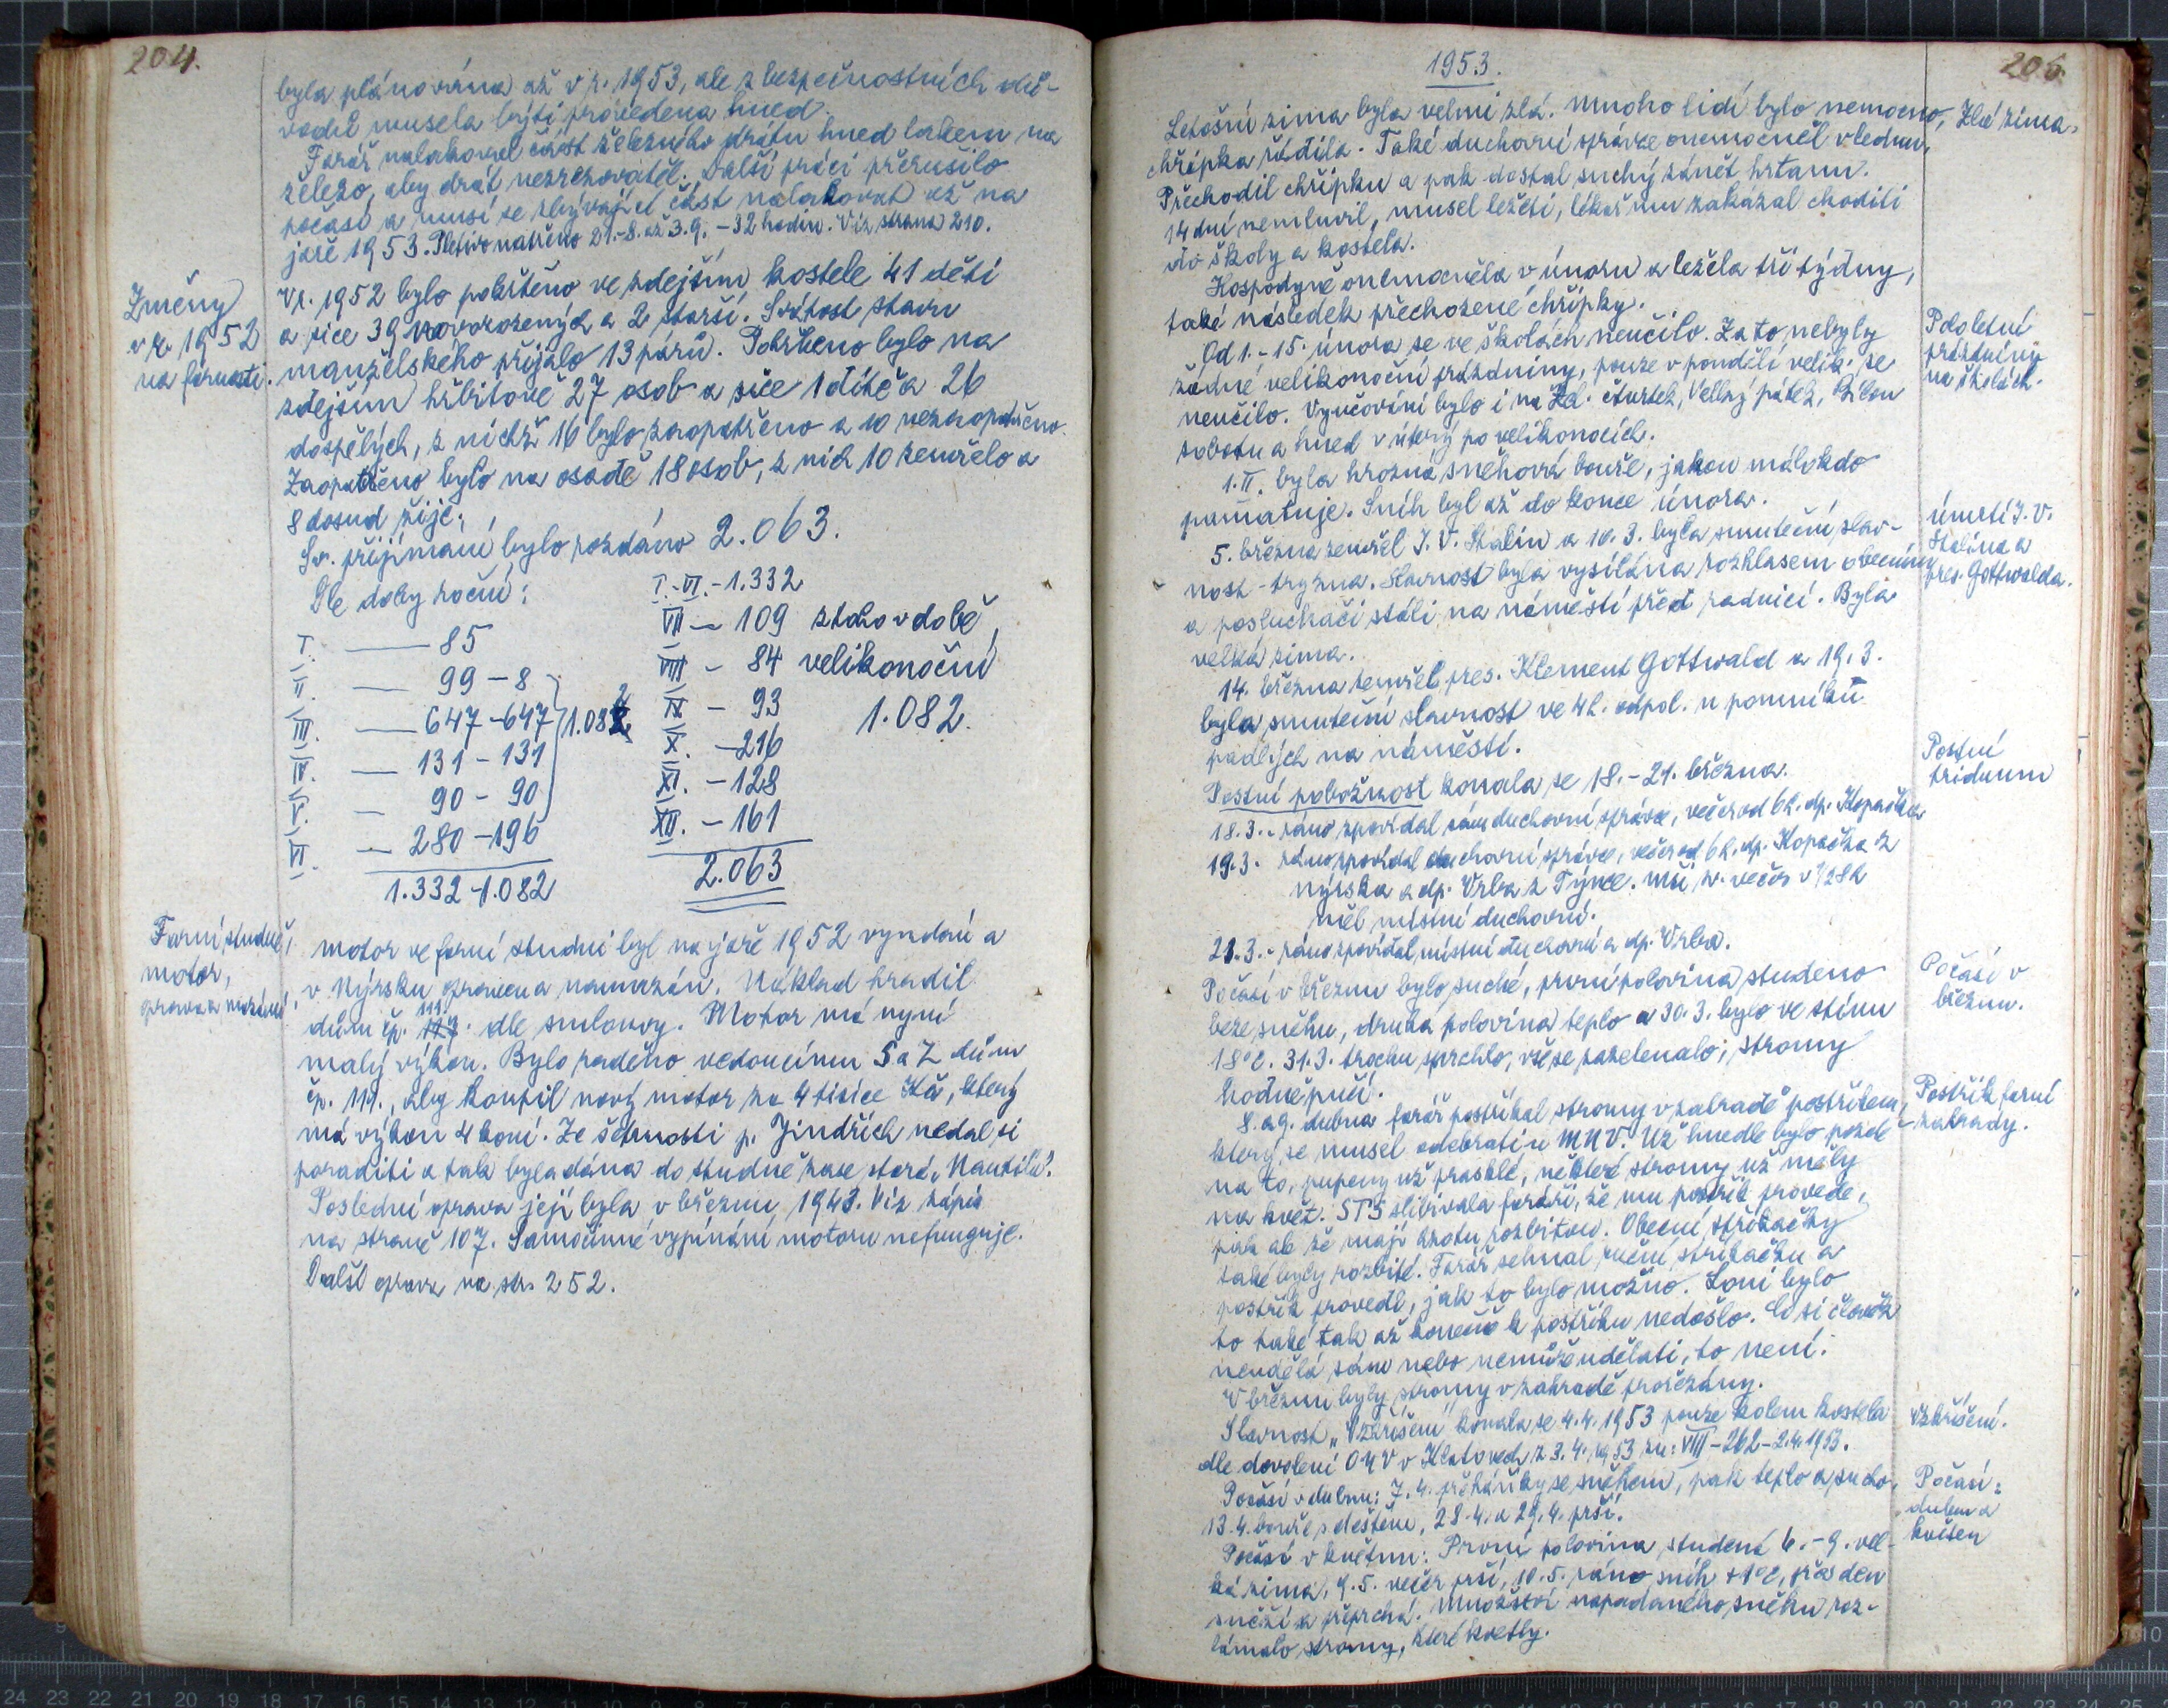 204.
byla plánována až v r. 1953, ale z bezpečnostních dů-
vodů musela býti provedena hned.
Farář nalakoval část železného drátu hned lakem na
železo, aby drát nezrezovatěl. Další práci přerušilo
počasí a musí se zbývající část nalakovat až na
jaře 1953. Pletivo natřeno 21.-8. až 3.9. - 32 hodin. Viz strana 210.
Změny
v r. 1952
na farnosti.
V r. 1952 bylo pokřtěno ve zdejším kostele 41 dětí
a sice 39 novorozených a 2 starší. Svátost stavu
manželského přijalo 13 párů. Pohřbeno bylo na
zdejším hřbitově 27 osob a sice 1 dítě a 26
dospělých, z nichž 16 bylo zaopatřeno a 10 nezaopatřeno.
Zaopatřeno bylo na osadě 18 osob, z nich 10 zemřelo a
8 dosud žije.
Sv. přijímání bylo rozdáno 2.063.
Dle doby roční:
I. — 85
II. — 99 - 8
III. — 647 - 647
IV. — 131 - 131
V. — 90 - 90
VI. — 280 - 196
1.332 - 1.082
1.082
I.-VI. - 1.332
VII — 109
VIII - 84
IX - 93
X. - 216
XI. - 128
XII. - 161
2.063
z toho v době
velikonoční
1.082.
Farní studně,
motor,
oprava a mazání
Motor ve farní studni byl na jaře 1952 vyndán a
v Nýrsku opraven a namazán. Náklad hradil
111.
dům čp. 117. dle smlouvy. Motor má nyní
malý výkon. Bylo raděno vedoucímu S a Z dům
čp. 111., aby koupil nový motor za 4 tisíce Kčs, který
má výkon 4 koní. Ze šetrnosti p. Jindřich nedal si
poraditi a tak byla dána do studně zase stará „Nautila".
Poslední oprava její byla v březnu 1943. Viz zápis
na straně 107. Samočinné vypínání motoru nefunguje.
Další oprava na str. 252.
205.
1953.
Letošní zima byla velmi zlá. Mnoho lidí bylo nemocno,
chřipka řádila. Také duchovní správce onemocněl v lednu.
Přechodil chřipku a pak dostal suchý zánět hrtanu.
14 dní nemluvil, musel ležeti, lékař mu zakázal choditi
do školy a kostela.
Zlá zima.
Hospodyně onemocněla v únoru a ležela tři týdny,
také následek přechozené chřipky.
Od 1.-15. února se ve školách neučilo. Za to nebyly
žádné velikonoční prázdniny, pouze v pondělí velik. se
neučilo. Vyučování bylo i na Zel. čtvrtek, Velký pátek, Bílou
sobotu a hned v úterý po velikonocích.
Pololetní
prázdniny
na školách.
1.II. byla hrozná sněhová bouře, jakou málokdo
pamatuje. Sníh byl až do konce února.
5. března zemřel J. V. Stalin a 10. 3. byla smuteční slav-
nost - tryzna. Slavnost byla vysílána rozhlasem obecním
a posluchači stáli na náměstí před radnicí. Byla
velká zima.
úmrtí J. V.
Stalina a
pres. Gottwalda.
14. března zemřel pres. Klement Gottwald a 19. 3.
byla smuteční slavnost ve 4 h. odpol. u pomníku
padlých na náměstí.
Postní pobožnost konala se 18.-21. března.
Postní
triduum
18.3. - ráno zpovídal sám duchovní správce, večer od 6 h. dp. Kopačka
19.3. ráno zpovídal duchovní správce, večer od 6 h. dp. Kopačka z
Nýrska a dp. Vrba z Týnce. Mši sv. večer v 1/2 8 h
měl místní duchovní.
21.3. - ráno zpovídal místní duchovní a dp. Vrba.
Počasí v březnu bylo suché, první polovina studeno
beze sněhu, druhá polovina teplo a 30. 3. bylo ve stínu
18°C. 31.3. trochu sprchlo, vše se zazelenalo, stromy
hodně pučí.
Počasí v
březnu.
8. a 9. dubna farář postříkal stromy v zahradě postřikem,
který se musel odebrati u MNV. Už hnedle bylo pozdě
na to, pupeny už prasklé, některé stromy už měly
na květ. STS slibovala faráři, že mu postřik provede,
pak ale že mají kvotu rozbitou. Obecní stříkačky
také byly rozbité. Farář sehnal ruční stříkačku a
postřik provedl, jak to bylo možno. Loni bylo
to také tak až konečně k postřiku nedošlo. Co si člověk
neudělá sám nebo nemůže udělati, to není.
V březnu byly stromy v zahradě prořezány.
Postřik farní
zahrady.
Slavnost „Vzkříšení" konala se 4.4.1953 pouze kolem kostela
dle dovolení ONV v Klatovech z 3.4.1953 zn: VIII-262-2.4.1953.
Vzkříšení.
Počasí v dubnu: 7.4. přeháňky se sněhem, pak teplo a sucho,
13.4. bouře s deštěm, 28.4. a 29.4. prší.
Počasí v květnu: První polovina studená 6.-9. vel-
ká zima, 9.5. večer prší, 10.5. ráno sníh +1°C, přes den
sněží a přeprchá. Množství napadaného sněhu roz-
lámalo stromy, které kvetly.
Počasí:
duben a
květen